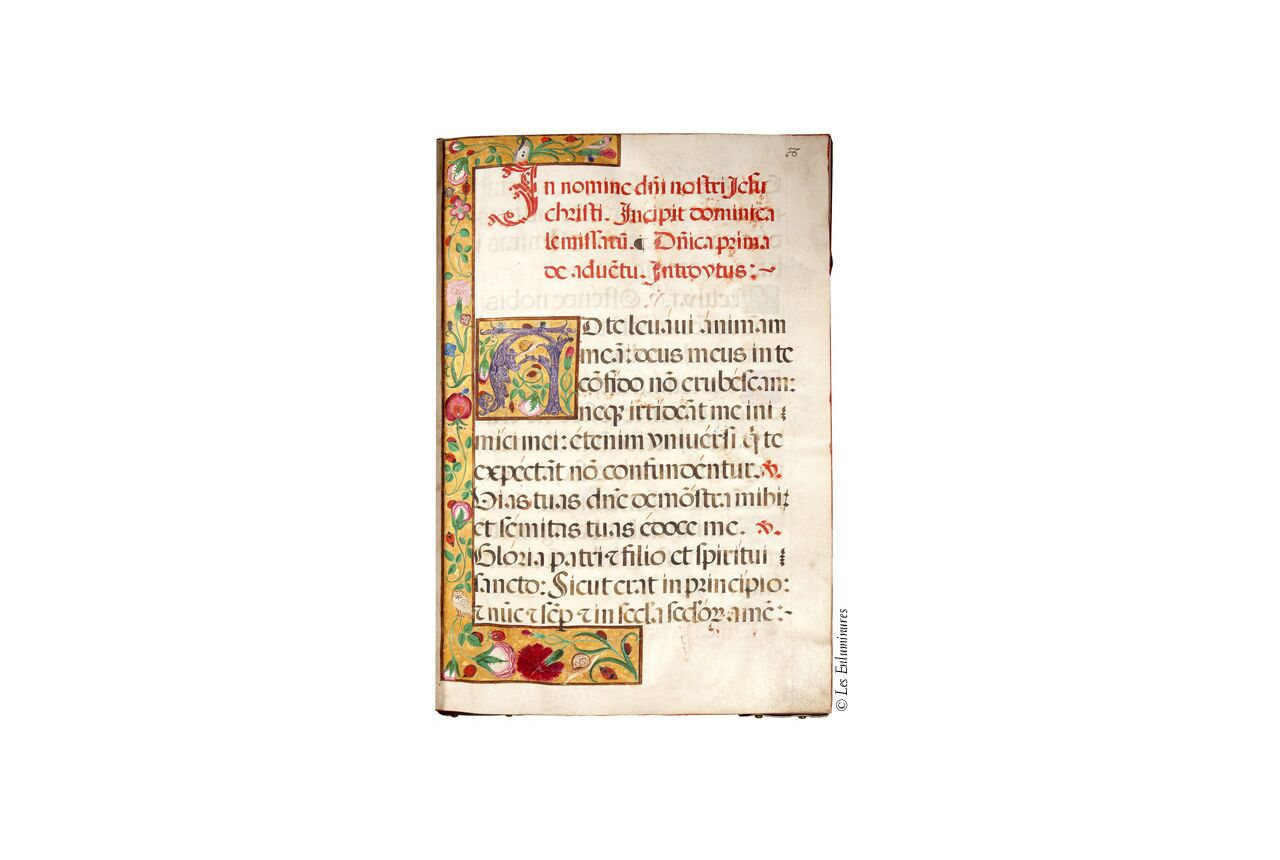 In nomine dñi nostri Jesu
christi. Incipit dominica
le missarũ. Dñica prima
de aduẽtu. Introytus:~
AD te leuaui animam
meã: deus meus in te
cõfido nõ erubescam:
neqꝫ irrideãt me ini
mici mei: etenim vniuersi q̃ te
expectãt nõ confundentur. ꝟ.
Vias tuas dñe demõstra mihi:
et semitas tuas edoce me. ꝟ.
Gloria patri ⁊ filio et spiritui
sancto: Sicut erat in principio:
⁊ nũc ⁊ sẽp ⁊ in secl̃a secl̃oꝝ. amẽ:~
© Les Enluminures